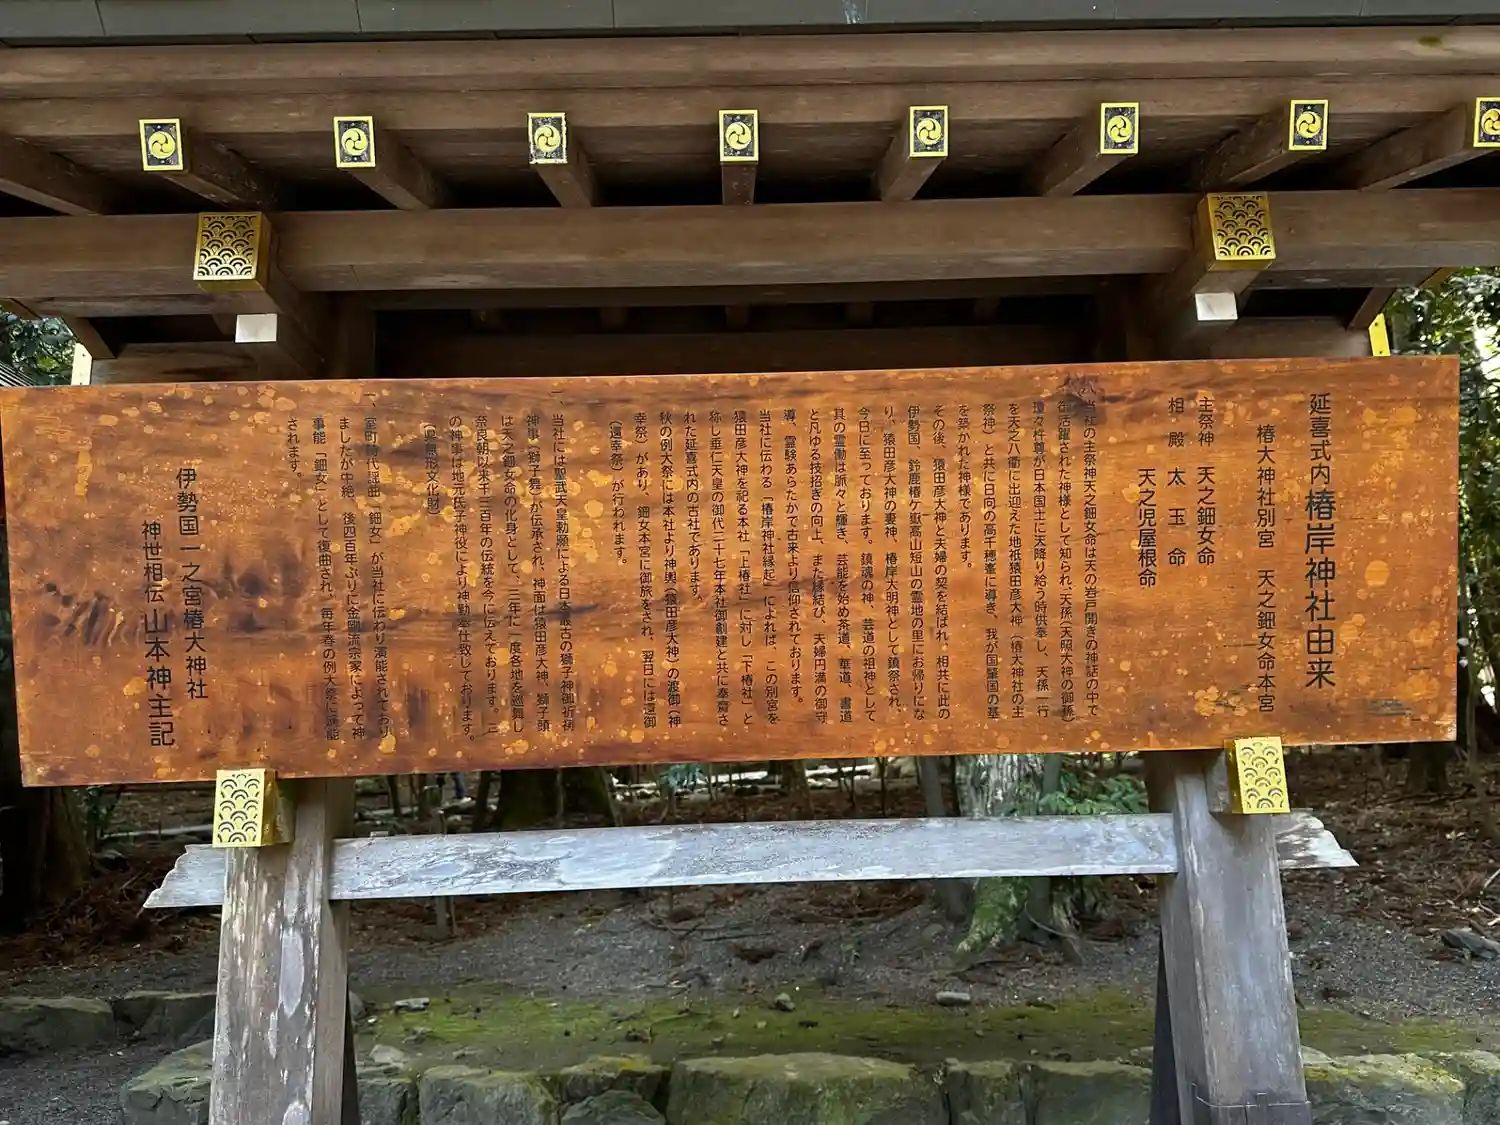 延喜式内 椿岸神社由来
椿大神社別宮 天之鈿女命本宮
主祭神 天之鈿女命
相殿 太玉命
天之児屋根命
一、当社の主祭神天之鈿女命は天の岩戸開きの神話の中で
御活躍された神様として知られ、天孫(天照大神の御孫)
瓊々杵尊が日本国土に天降り給う時供奉し、天孫一行
を天之八衢に出迎えた地祇猿田彦大神(椿大神社の主
祭神)と共に日向の高千穂峯に導き、我が国肇国の基
を築かれた神様であります。
その後、猿田彦大神と夫婦の契を結ばれ、相共に此の
伊勢国、鈴鹿椿ケ嶽高山短山の霊地の里にお帰りにな
り、猿田彦大神の妻神、椿岸大明神として鎮祭され
今日に至っております。鎮魂の神、芸道の祖神として
其の霊働は脈々と輝き、芸能を始め茶道、華道、書道
と凡ゆる技招ぎの向上、また縁結び、夫婦円満の御守
導、霊験あらたかで古来より信仰されております。
当社に伝わる「椿岸神社縁起」によれば、この別宮を
猿田彦大神を祀る本社「上椿社」に対し「下椿社」と
称し垂仁天皇の御代二十七年本社御創建と共に奉齋さ
れた延喜式内の古社であります。
秋の例大祭には本社より神輿(猿田彦大神)の渡御(神
幸祭)があり、鈿女本宮に御旅をされ、翌日には還御
(還幸祭)が行われます。
一、当社には聖武天皇勅願による日本最古の獅子神御祈祷
神事(獅子舞)が伝承され、神面は猿田彦大神、獅子頭
は天之鈿女命の化身として、三年に一度各地を巡舞し
奈良朝以来千三百年の伝統を今に伝えております。こ
の神事は地元氏子神役により神勤奉仕致しております。
(県無形文化財)
一、室町時代謡曲「鈿女」が当社に伝わり演能されており
ましたが中絶、後四百年ぶりに金剛流宗家によって神
事能「鈿女」として復曲され、毎年春の例大祭に演能
されます。
伊勢国一之宮椿大神社
神世相伝 山本神主記